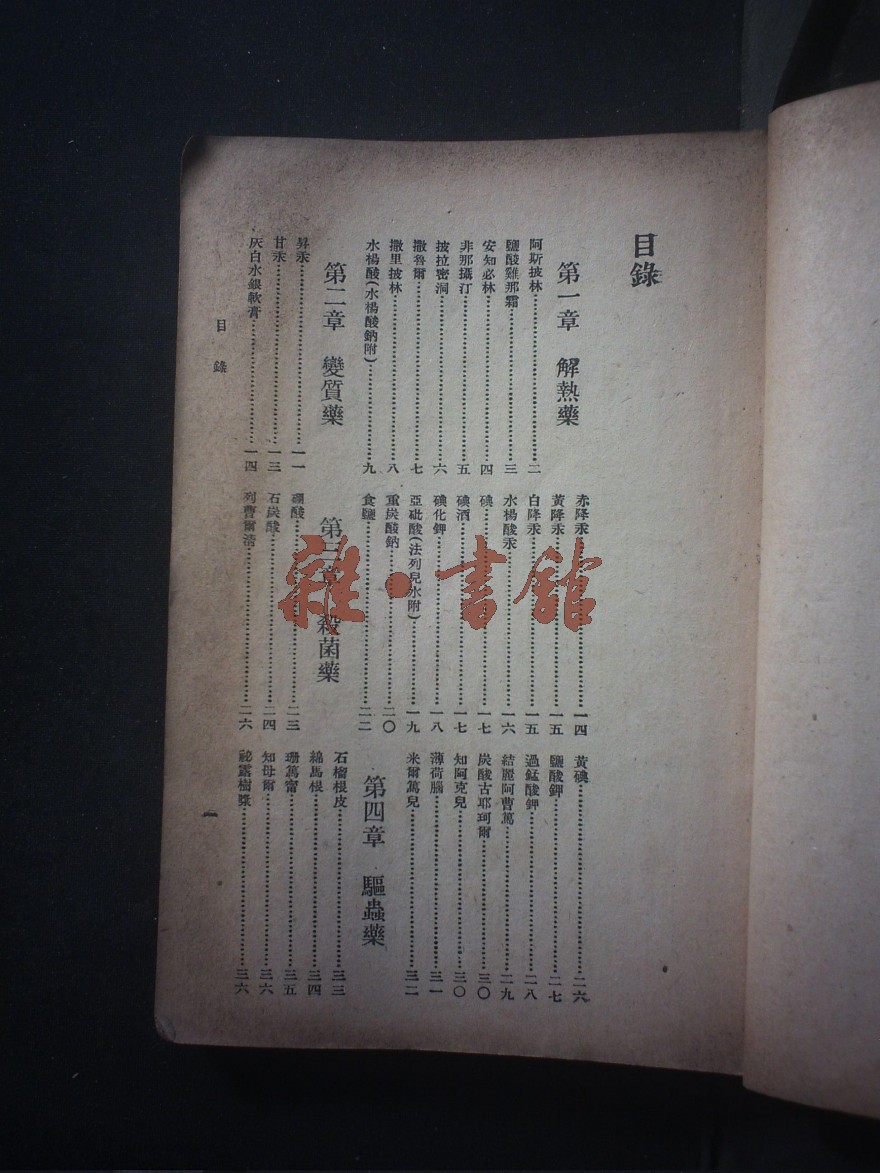 目錄
第一章 解熱藥
阿斯披林……二
鹽酸雞那霜……三
安知必林……四
非那攝汀……五
披拉密洞……六
撒魯爾……七
撒里披林……八
水楊酸(水楊酸鈉附)……九
第二章 變質藥
昇汞……一一
甘汞……一三
灰白水銀軟膏……一四
赤降汞……一四
黃降汞……一五
白降汞……一五
水楊酸汞……一六
碘……一七
碘酒……一七
碘化鉀……一八
亞砒酸(法列兒水附)……一九
重炭酸鈉……二〇
食鹽……二二
第三章 殺菌藥
硼酸……二三
石炭酸……二四
列曹爾清……二六
黃碘……二六
鹽酸鉀……二七
過錳酸鉀……二八
結麗阿曹篤……二九
炭酸古耶珂爾……三〇
知阿克兒……三〇
薄荷腦……三一
米爾篤兒……三二
第四章 驅蟲藥
石榴根皮……三三
綿馬根……三四
珊篤甯……三五
知母爾……三六
祕露樹膠……三六
目錄
一
雜·書館